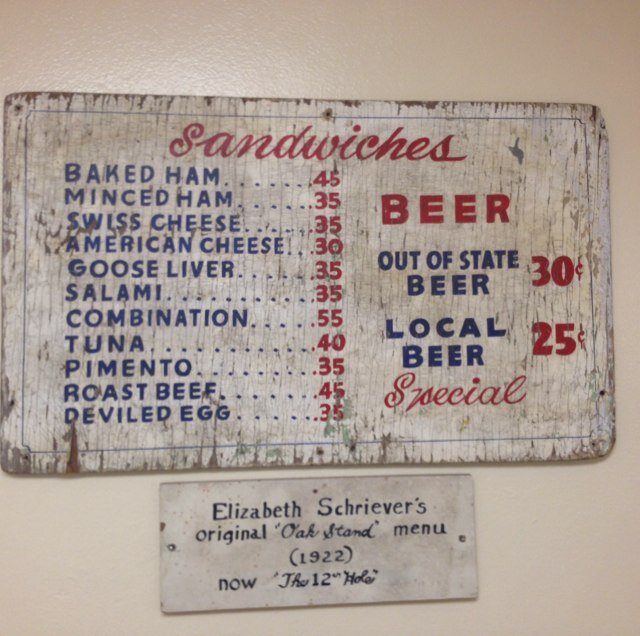 Sandwiches
BAKED HAM.......45
MINCED HAM......35
SWISS CHEESE.....35
AMERICAN CHEESE..30
GOOSE LIVER......35
SALAMI..........35
COMBINATION.....55
TUNA...........40
PIMENTO........35
ROAST BEEF......45
DEVILED EGG......35
BEER
OUT OF STATE
BEER 30¢
LOCAL
BEER 25¢
Special
Elizabeth Schriever's
original "Oak Stand" menu
(1922)
now "The 12th Hole"